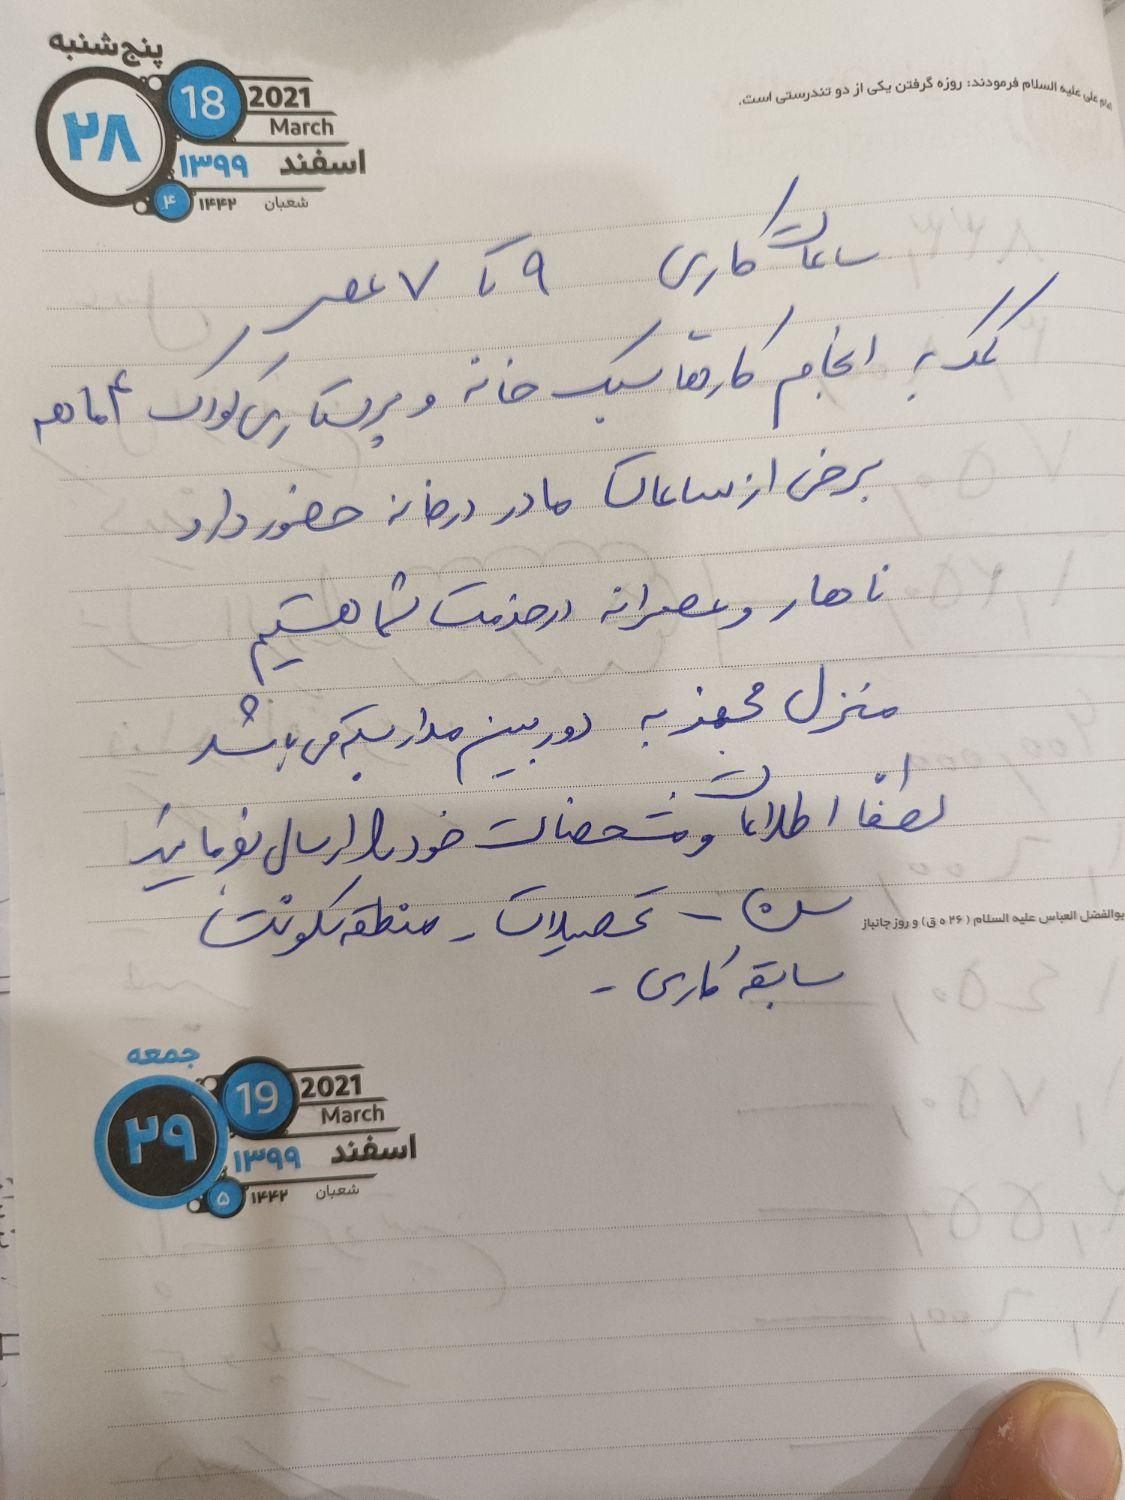 امام علی علیه السلام فرمودند: روزه گرفتن یکی از دو تندرستی است.
پنج‌شنبه
۲۸
18
2021
March
۱۳۹۹ اسفند
۴
۱۴۴۲ شعبان
ساعات کاری ۹ تا ۷ عصر
کمک به انجام کارهای سبک خانه و پرستاری کودک ۴ ماهه
برخی از ساعات مادر در خانه حضور دارد
ناهار و عصرانه در خدمت شما هستیم
منزل مجهز به دوربین مداربسته می باشد
لطفا اطلاعات و مشخصات خود را ارسال بفرمایید
سن - تحصیلات - منطقه سکونت
سابقه کاری -
ابوالفضل العباس علیه السلام (۲۶ ه ق) و روز جانباز
جمعه
۲۹
19
2021
March
۱۳۹۹ اسفند
۵
۱۴۴۲ شعبان